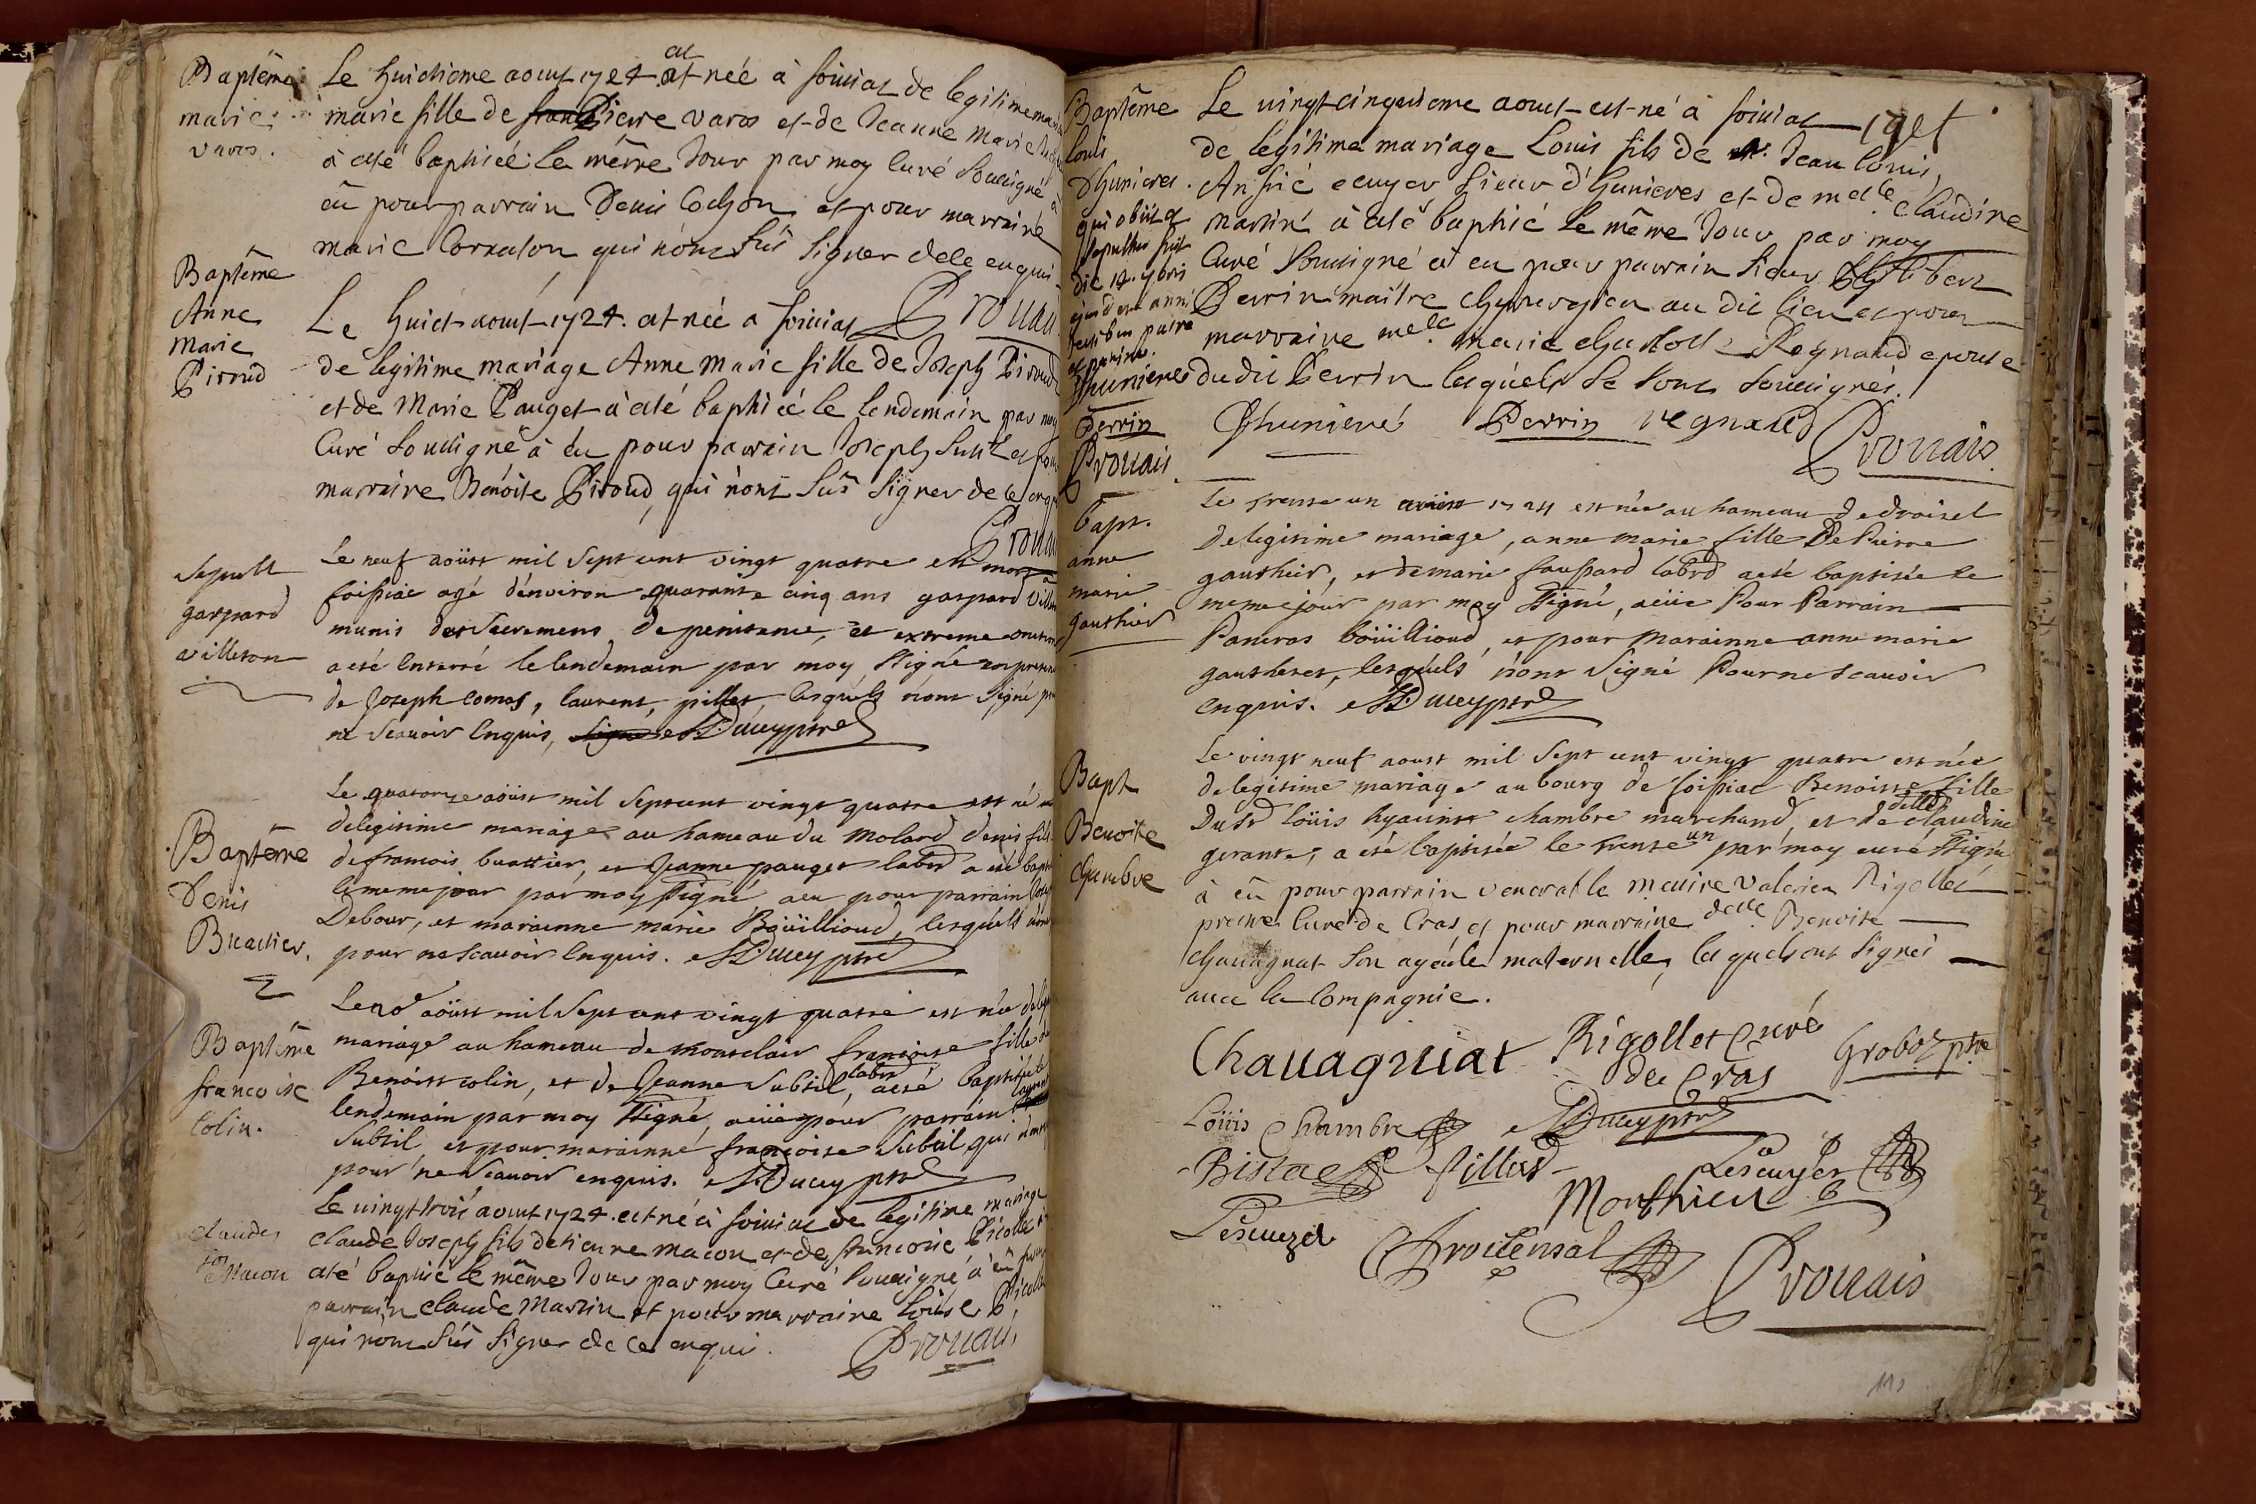 Baptême
marie
varos.
Le huictieme aout 1724 est née à foissiat de legitime
marie fille de Pierre varos et de Jeanne Marie
à eté baptiséé le même Jour par moy Curé soussigné à
eü pour parrain Denis Cochon et pour marraine
marie Corraton qui n'ont süs signer de ce enquis
Prouais
Baptême
Anne
Marie
Piroud
Le huict aout 1724. est née a foissiat
de legitime mariage Anne Marie fille de Joseph Piroud
et de Marie Pauget à eté baptiséé le lendemain par moy
Curé soussigné à eu pour parrain Joseph Subtil et pour
marraine Benoite Piroud, qui n'ont süs signer de ce enquis
Prouais
Sepult
gaspard
villeton
Le neuf aoüst mil sept cent vingt quatre est mort à
foissiac agé d'environ quarante cinq ans gaspard
munis des sacremens de penitence, et extreme onction
a esté Enterré le lendemain par moy ssigné en presence
de Joseph comas, laurent pillet, lesquels n'ont signé pour
ne scavoir Enquis, Ducey ptre
Baptême
Denis
Buatier.
Le quatorze aoüst mil sept cent vingt quatre est né
de legitime mariage au hameau du Molard denis fils
de francois buattier, et Jeanne pauget labrd a esté baptisé
le meme jour par moy ssigné, a eu pour parrain
Debour, et marainne marie Boüillioud, lesquels n'ont
pour ne scavoir Enquis. Ducey ptre
Baptême
francoise
Colin.
Le 20e aoüst mil sept cent vingt quatre est née de
mariage au hameau de montclair francoise fille de
Benoist colin, et de Jeanne Subtil, labrd a esté baptisée le
lendemain par moy ssigné, a eüe pour parrain
Subtil, et pour marainne francoise Subtil qui n'ont
pour ne scavoir enquis. Ducey ptre
Claude
Jos
Macon
Le vingt trois aout 1724. est né à foissiac de legitime mariage
claude Joseph fils d'etienne macon et de francoise Picollet à
eté baptisé le même Jour par moy Curé soussigné à eü pour
parrain claude Martin et pour marraine Loüise Picollet
qui n'ont süs signer de ce enquis.
Prouais
1724
Baptême
Louis
d'hunieres.
qui obiit et
sepultus fuit
die 12. 9bris
ejusdem anni
praesentibus patre
et patrino.
Dhunieres
Perrin
Prouais.
Le vingt cinquieme aout est né à foissiat
de legitime mariage Louis fils de Mr. Jean Louis,
Ansié ecuyer sieur d'hunieres et de melle. claudine
Martin à eté baptisé le même Jour par moy
Curé soussigné à eu pour parrain sieur Philibert
Perrin maitre chyrurgien au dit lieu et pour
marraine melle. Marie charlotte Regnaud epouse
du dit Perrin lesquels se sont soussignés.
Dhunieré Perrin regnaud
Prouais.
bapt.
anne
marie
gauthier
Le trente un aoust 1724 est née au hameau de droisel
de legitime mariage, anne marie fille De Pierre
gautheir, et de marie faussard labrd a esté baptisée le
meme jour par moy ssigné, a eüe Pour Parrain
Pancras boüillioud, et pour marainne anne marie
gautheret, lesquels n'ont signé Pour ne scavoir
Enquis. Ducey ptre
Bapt
Benoite
Chambre
Le vingt neuf aoust mil sept cent vingt quatre est née
de legitime mariage au bourg de foissiac Benoiste fille
Du Sr loüis hyacinte chambre marchand, et de delle claudine
gerante, a esté baptisée le trente un par moy curé ssigné
à eü pour parrain venerable messire Valerien Rigollet
pretre Curé de Cras et pour marraine delle. Benoite
Chavagnat son ayeule maternelle, lesquels ont signés
avec la Compagnie.
Chauagniat Rigollet Curé
de Cras
Groboz ptre
Loüis Chambre Ducey ptre
Bistac fillod Lescuyer
Monthieu
Lescuyer Prouensal Prouais
113